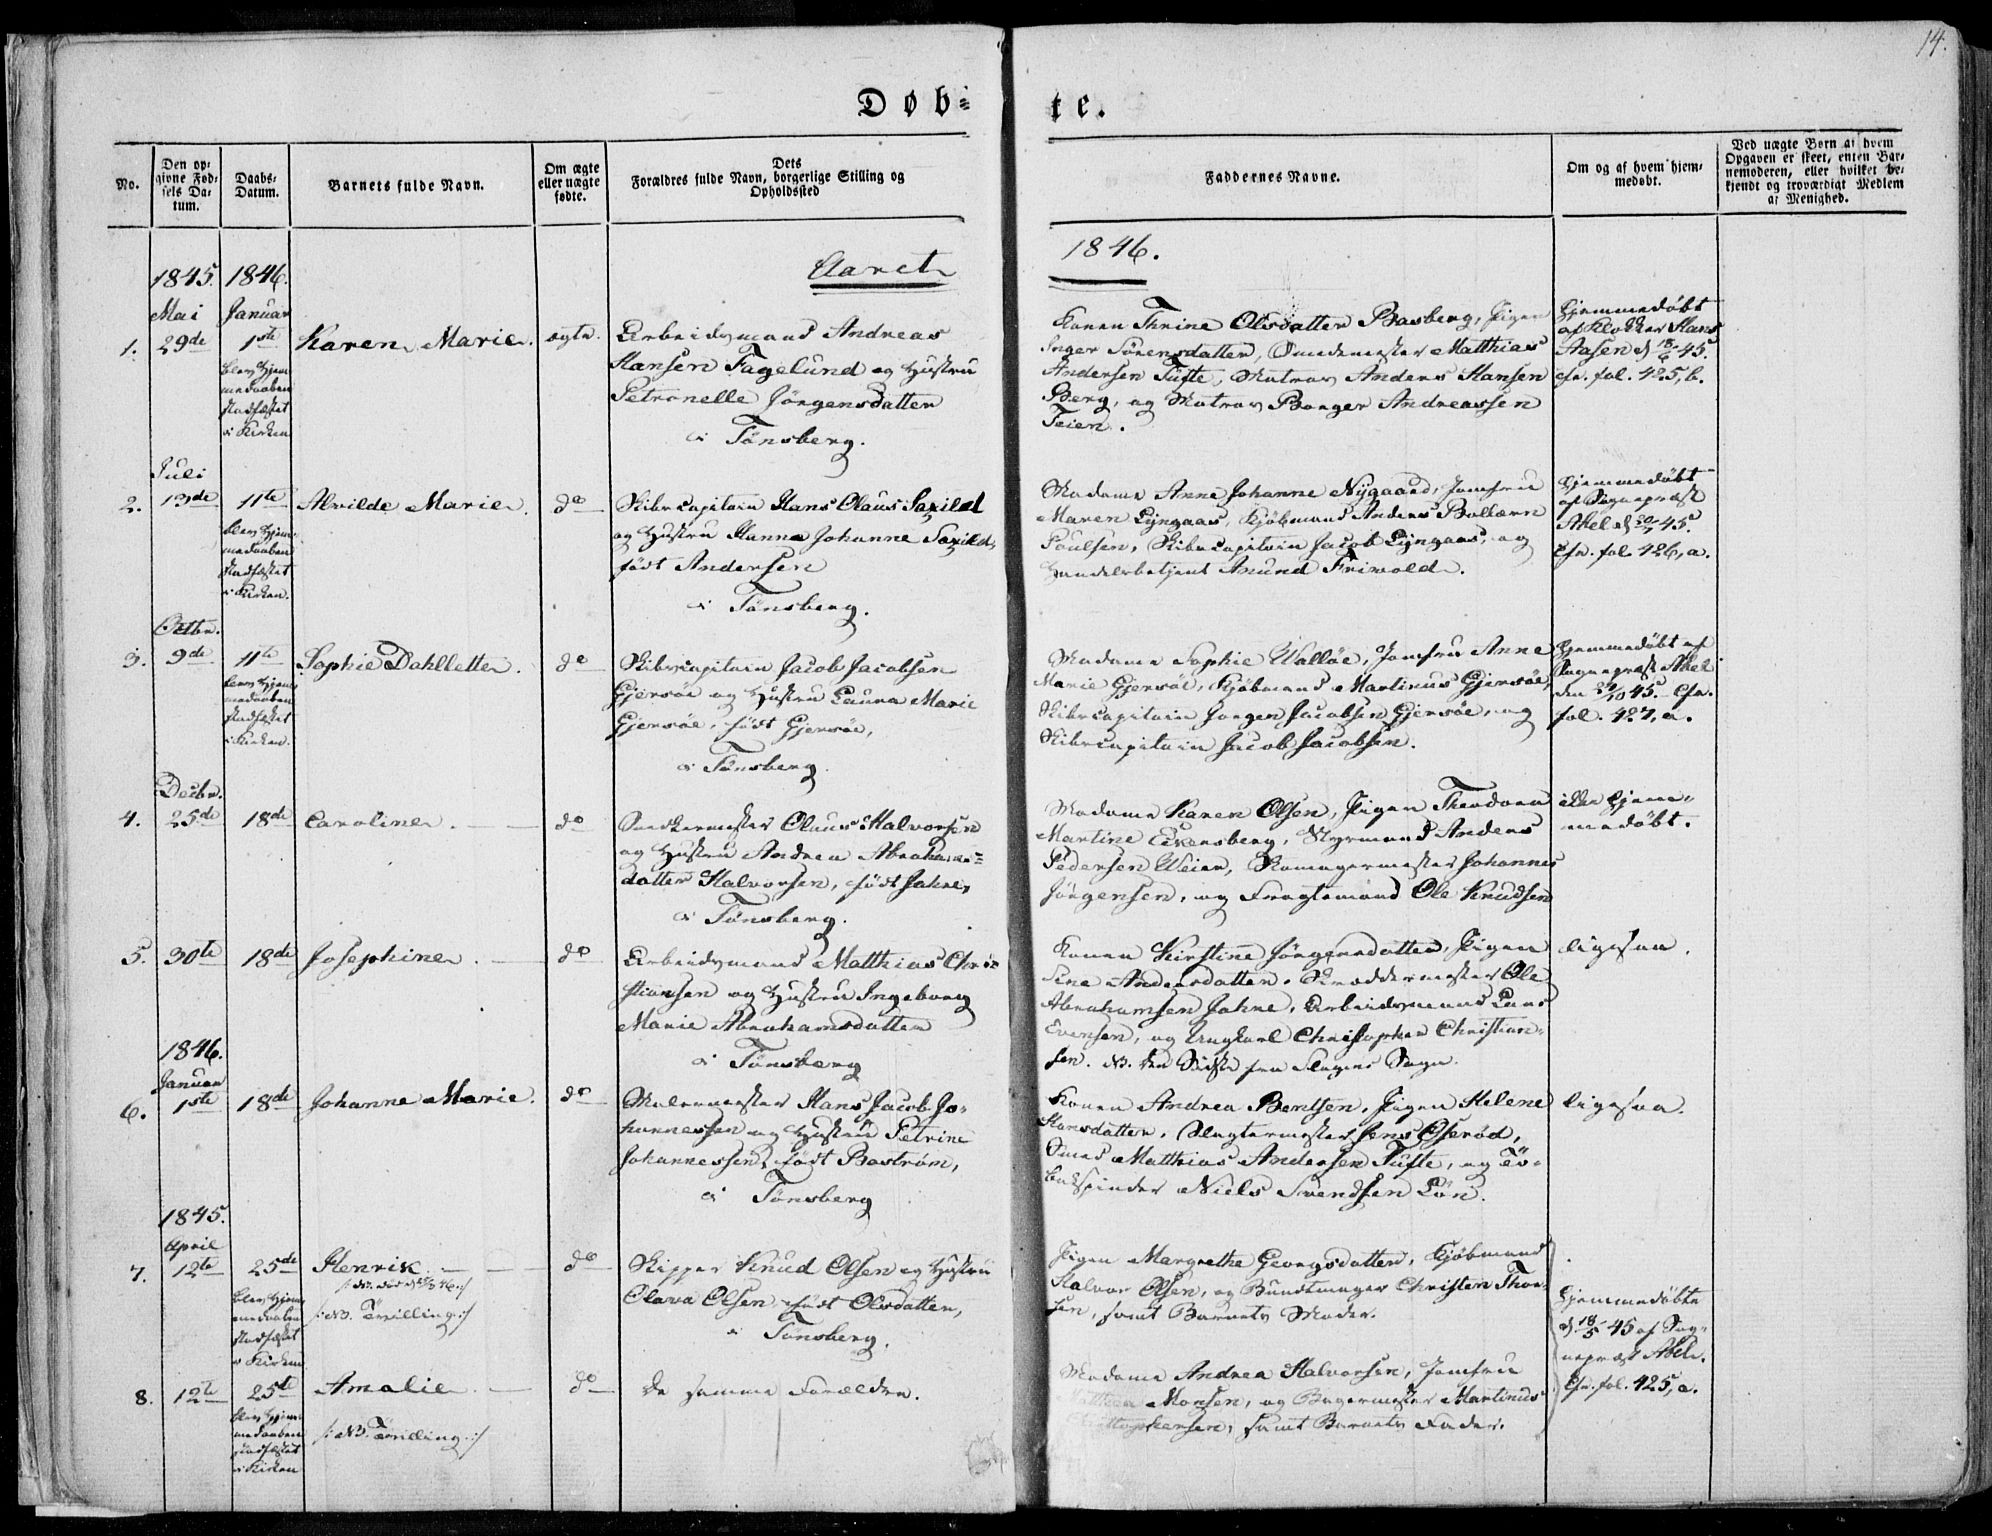 14.
Døb=
te.
No.
Den op=
givne Fød=
sels Da=
tum.
Daabs=
Datum.
Barnets fulde Navn.
Om ægte
eller uægte
fødte.
Dets
Forældres fulde Navn, borgerlige Stilling og
Opholdssted
Faddernes Navne.
Om og af hvem hjem=
medøbt.
Ved uægte Børn af hvem
Opgaven er skeet, enten Bar=
nemoderen, eller hvilket be=
kjendt og troværdigt Medlem
af Menighed.
Aaret
1846.
1845.
Mai
1846.
Januar
1.
29de
1ste
blev hjem=
medaaben
stadfæstet
i Kirken
Karen Marie.
ægte.
Arbeidsmand Andreas
Hansen Fagelund og Hustru
Petronelle Jörgensdatter
i Tönsberg.
Konen Thrine Olsdatter Basberg, Pigen
Inger Sörensdatter, Smedemester Matthias
Andersen Tufte, Matros Anders Hansen
Berg, og Matros Borger Andreassen
Teien.
Hjemmedøbt
af Klokker Hans
Aasen d 18/6 45.
cfr. fol. 425, b.
Juli
2.
13de
11te
blev hjem=
medaaben
stadfæstet
i Kirken.
Alvilde Marie.
do
Skibscapitain Hans Olaus Saxild
og Hustru Hanna Johanne Saxild,
født Andersen
i Tönsberg.
Madame Anne Johanne Nygaard, Jomfru
Maren Lyngaas, Kjøbmand Anders Bollærn
Poulsen, Skibscapitain Jacob Lyngaas, og
Handelsbetjent Amund Friwold.
Hjemmedøbt
af Sognepræst
Abel d 20/7 45.
Cfr. fol. 426, a.
Octbr.
3.
9de
11te
blev hjem=
medaaben
stadfæstet
i Kirken.
Sophie Dahllette.
do
Skibscapitain Jacob Jacobsen
Gjersöe og Hustru Laura Marie
Gjersöe, født Gjersöe,
i Tönsberg.
Madame Sophie Wallöe, Jomfru Anne
Marie Gjersöe, Kjøbmand Martinus Gjersöe,
Skibscapitain Jörgen Jacobsen Gjersöe, og
Skibscapitain Jacob Jacobsen.
Hjemmedøbt af
Sognepræst Abel
den 24/10 45. Cfr.
fol. 427, a.
Decbr.
4.
25de
18de
Caroline.
do
Snedkermester Olaus Halvorsen
og Hustru Andrea Abrahams=
datter Halvorsen, født Jahre,
i Tönsberg.
Madame Karen Olsen, Pigen Theodora
Martine Ekersberg, Styrmand Anders
Pedersen Weier, Skomagermester Johannes
Jörgensen, og Fragtemand Ole Knudsen
ikke hjem=
medøbt.
5.
30te
18de
Josephine.
do
Arbeidsmand Matthias Chri=
stiansen og Hustru Ingeborg
Marie Abrahamsdatter
i Tönsberg
Konen Kirstine Jörgensdatter, Pigen
Sine Andersdatter, Skræddermester Ole
Abrahamsen Jahre, Arbeidsmand Lars
Evensen, og Ungkarl Christopher Christian=
sen. NB. den Sidste fra Slagens Sogn.
ligesaa.
1846.
Januar
6.
1ste
18de
Johanne Marie.
do
Malermester Hans Jacob Jo=
hannessen og Hustru Petrine
Johannessen, født Boström,
i Tönsberg
Konen Andrea Bentsen, Pigen Helene
Hansdatter, Slagtermester Jens Oserød,
Smed Matthias Andersen Tufte, og To=
bakspinder Niels Svendsen Lön.
ligesaa.
1845.
April
7.
12te
25de
blev hjem=
medaaben
stadfæstet
i Kirken
Henrik.
/: NB. Trilling :/
do
Skipper Knud Olsen og Hustru
Olava Olsen, født Olsdatter,
i Tönsberg.
Pigen Margrethe Georgsdatter, Kjøbmand
Halvor Olsen, og Bundtmager Christen Thor=
sen, samt Barnets Moder.
Hjemmedøbte
d 18/5 45 af Sog=
nepræst Abel.
Cfr. fol. 425, a.
8.
12te
25de
blev hjem=
medaaben
stadfæstet
i Kirken
Amalie
/: NB. Trilling :/
do
De samme Forældre.
Madame Andrea Halvorsen, Jomfru
Monsen, og Bagermester Martinus
samt Barnets Fader.